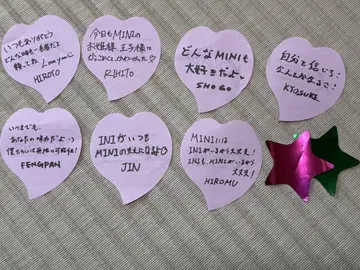 いつもありがとう
どんな時も一緒だよ
Love you
HIROTO
今日もMINIの
お姫様、王子様に
RIHITO
どんなMINIも
大好きだよ
SHOGO
自分を信じろ!
なんとかなるさ!
KYOSUKE
いつまでも、
あなたの味方だよっ
僕たちには無限の可能性!
FENGFAN
INIがいつも
MINIの支えになるよ
JIN
MINIには
INIがいるから大丈夫!
INIも、MINIがいるから
大丈夫!
HIROMU